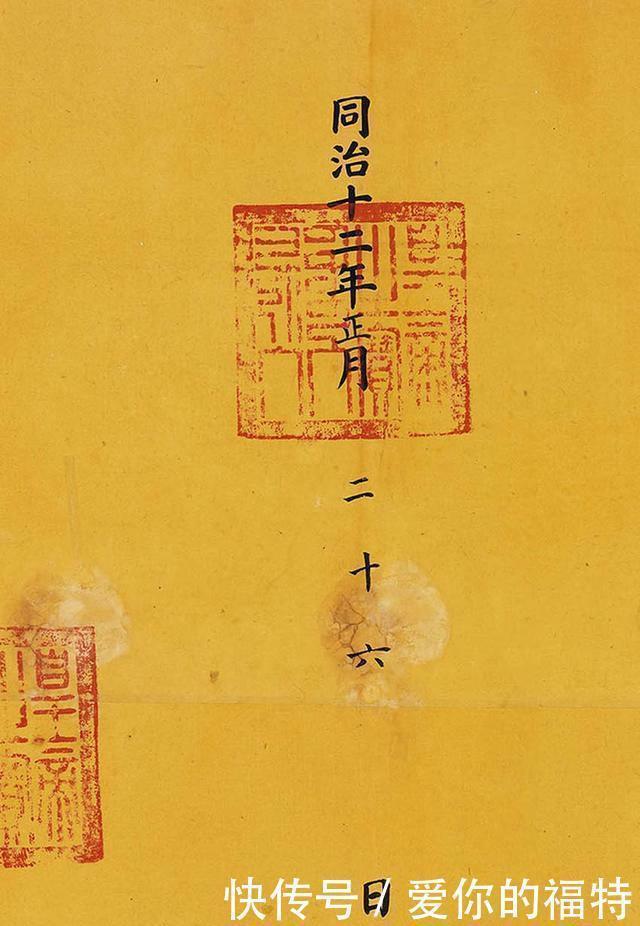 同治十二年正月二十六日
皇帝
之寶
快传号 / 爱你的福特